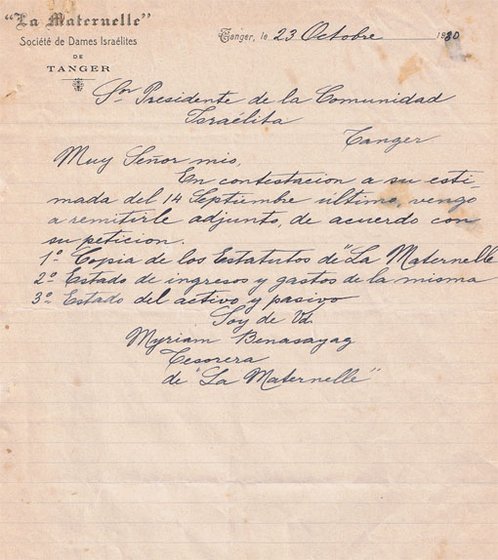 "La Maternelle"
Société de Dames Israélites
DE
TANGER
Tanger, le 23 Octobre 1930
Sor Presidente de la Comunidad
Israélita
Tanger
Muy Señor mio,
En contestacion a su esti-
mada del 14 Septiembre último, vengo
a remitirle adjunto, de acuerdo con
su peticion.
1º Copia de los Estatutos de "La Maternelle
2º Estado de ingresos y gastos de la misma
3º Estado del activo y pasivo
Soy de Vd.
Myriam Benasayag
Tesorera
de "La Maternelle"